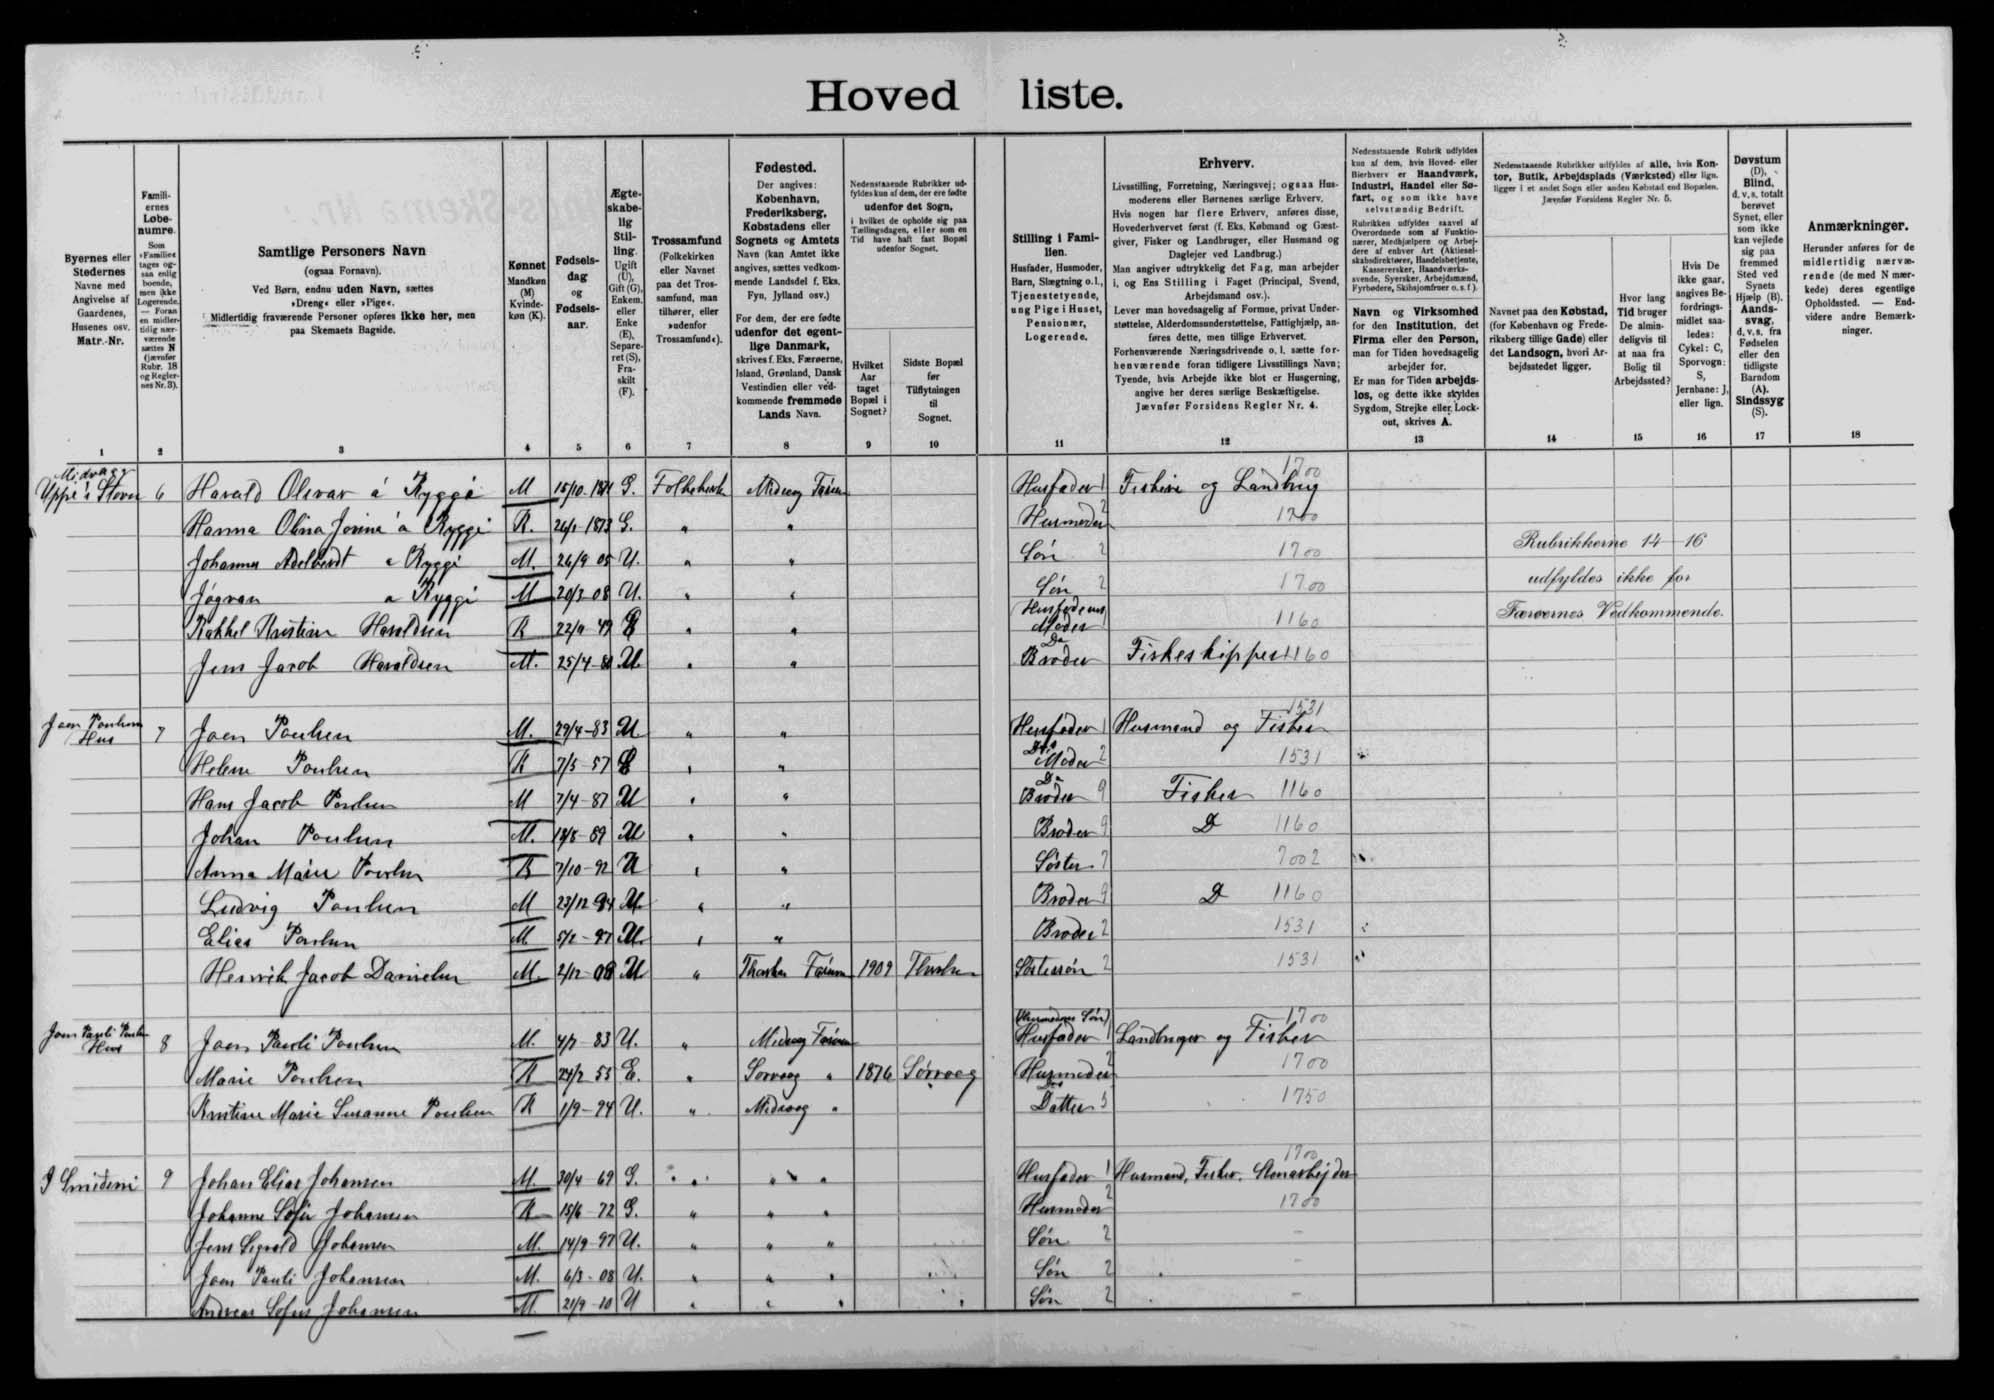 Hoved liste.
Byernes eller Stedernes Navne med Angivelse af Gaardenes, Husenes osv. Matr.-Nr.
Familiernes Løbenumre.
Som »Familie« tages ogsaa enlig boende, men ikke Logerende. — Foran en midlertidig nærværende sættes N (jævnfør Rubr. 18 og Reglernes Nr. 3).
Samtlige Personers Navn
(ogsaa Fornavn).
Ved Børn, endnu uden Navn, sættes »Dreng« eller »Pige«.
Midlertidig fraværende Personer opføres ikke her, men paa Skemaets Bagside.
Kønnet
Mandkøn (M) Kvindekøn (K).
Fødselsdag og Fødselsaar.
Ægteskabelig Stilling.
Ugift (U), Gift (G), Enkem. eller Enke (E), Separeret (S), Fraskilt (F).
Trossamfund
(Folkekirken eller Navnet paa det Trossamfund, man tilhører, eller »udenfor Trossamfund«).
Fødested.
Der angives: København, Frederiksberg, Købstadens eller Sognets og Amtets Navn (kan Amtet ikke angives, sættes vedkommende Landsdel f. Eks. Fyn, Jylland osv.)
For dem, der ere fødte udenfor det egentlige Danmark, skrives f. Eks. Færøerne, Island, Grønland, Dansk Vestindien eller vedkommende fremmede Lands Navn.
Nedenstaaende Rubrikker udfyldes kun af dem, der ere fødte udenfor det Sogn, i hvilket de opholde sig paa Tællingsdagen, eller som en Tid have haft fast Bopæl udenfor Sognet.
Hvilket Aar taget Bopæl i Sognet?
Sidste Bopæl før Tilflytningen til Sognet.
Stilling i Familien.
Husfader, Husmoder, Barn, Slægtning o. l., Tjenestetyende, ung Pige i Huset, Pensionær, Logerende.
Erhverv.
Livsstilling, Forretning, Næringsvej; ogsaa Husmoderens eller Børnenes særlige Erhverv.
Hvis nogen har flere Erhverv, anføres disse, Hovederhvervet først (f. Eks. Købmand og Gæstgiver, Fisker og Landbruger, eller Husmand og Daglejer ved Landbrug.)
Man angiver udtrykkelig det Fag, man arbejder i, og Ens Stilling i Faget (Principal, Svend, Arbejdsmand osv.).
Lever man hovedsagelig af Formue, privat Understøttelse, Alderdomsunderstøttelse, Fattighjælp, anføres dette, men tillige Erhvervet.
Forhenværende Næringsdrivende o. l. sætte forhenværende foran tidligere Livsstillings Navn; Tyende, hvis Arbejde ikke blot er Husgerning, angive her deres særlige Beskæftigelse.
Jævnfør Forsidens Regler Nr. 4.
Nedenstaaende Rubrik udfyldes kun af dem, hvis Hoved- eller Bierhverv er Haandværk, Industri, Handel eller Søfart, og som ikke have selvstændig Bedrift.
Rubrikken udfyldes saavel af Overordnede som af Funktionærer, Medhjælpere og Arbejdere af enhver Art (Aktieselskabsdirektører, Handelsbetjente, Kasserersker, Haandværkssvende, Syersker, Arbejdsmænd, Fyrbødere, Skibsjomfruer o. s. f.).
Navn og Virksomhed for den Institution, det Firma eller den Person, man for Tiden hovedsagelig arbejder for.
Er man for Tiden arbejdsløs, og dette ikke skyldes Sygdom, Strejke eller Lockout, skrives A.
Nedenstaaende Rubrikker udfyldes af alle, hvis Kontor, Butik, Arbejdsplads (Værksted) eller lign. ligger i et andet Sogn eller anden Købstad end Bopælen.
Jævnfør Forsidens Regler Nr. 5.
Navnet paa den Købstad, (for København og Frederiksberg tillige Gade) eller det Landsogn, hvori Arbejdsstedet ligger.
Hvor lang Tid bruger De almindeligvis til at naa fra Bolig til Arbejdssted?
Hvis De ikke gaar, angives Befordringsmidlet saaledes: Cykel: C, Sporvogn: S, Jernbane: J, eller lign.
Døvstum (D), Blind, d. v. s. totalt berøvet Synet, eller som ikke kan vejlede sig paa fremmed Sted ved Synets Hjælp (B). Aandssvag, d. v. s. fra Fødselen eller den tidligste Barndom (A). Sindssyg (S).
Anmærkninger.
Herunder anføres for de midlertidig nærværende (de med N mærkede) deres egentlige Opholdssted. — Endvidere andre Bemærkninger.
1 2 3 4 5 6 7 8 9 10 11 12 13 14 15 16 17 18
Midvaag
Uppi i Stovu 6 Harald Olivar á Ryggi M 15/10-1871 G. Folkekirk Midvaag Færøern Husfader 1 Fiskeri og Landbrug 1700
Hanna Olina Josine á Ryggi K. 26/1-1873 G. " " Husmoder 2 1700
Johannes Adelberdt á Ryggi M. 26/9 05 U. " " Søn 2 1700 Rubrikkerne 14-16
Jógvan á Ryggi M 20/3-08 U. " " Søn 2 1700 udfyldes ikke for
Rakkel Kristine Haraldsen K 22/9-49 E " " Husfaderens Moder 1160 Færøernes Vedkommende.
Jens Jacob Haraldsen M. 25/4-81 U. " " Do Broder Fiskeskipper 1160
Joen Poulsens Hus 7 Joen Poulsen M. 29/4-83 U. " " Husfader 1 Husmand og Fisker 1531
Helene Poulsen K 7/5-57 E " " Do Moder 2 1531
Hans Jacob Poulsen M 7/4-87 U " " Do Broder 9 Fisker 1160
Johan Poulsen M. 18/8-89 U " " Broder 9 D 1160
Anna Marie Poulsen K 7/10-92 U " " Søster 7 7002
Ludvig Poulsen M 23/12-94 U. " " Broder 9 D 1160
Elias Poulsen M 5/2-97 U. " " Broder 2 1531
Henrik Jacob Danielsen M. 2/12-08 U " Færøern 1909 Søstersøn 2 1531
Joen Pauli Poulsens Hus 8 Joen Pauli Poulsen M. 4/7-83 U. " Midvaag Færøern (Husmoderens Søn) Husfader 1 Landbruger og Fisker 1700
Marie Poulsen K 24/2 55 E. " Sørvaag " 1876 Sørvaag Husmoder 2 1700
Kristine Marie Susanne Poulsen K 1/9-94 U. " Midvaag " Do Datter 5 1750
I Smidjuni 9 Johan Elias Johansen M. 30/4 69 G. " " " Husfader 1 Husmand, Fisker, Stenarbejder 1700
Johanne Sofie Johansen K 15/6-72 G. " " " Husmoder 2 1700
Jens Sigvald Johansen M. 14/9-97 U. " " " Søn 2 -
Joen Pauli Johansen M. 6/3-08 U. " " " Søn 2 -
Andreas Sofus Johansen M. 21/9-10 U " " " Søn 2 -